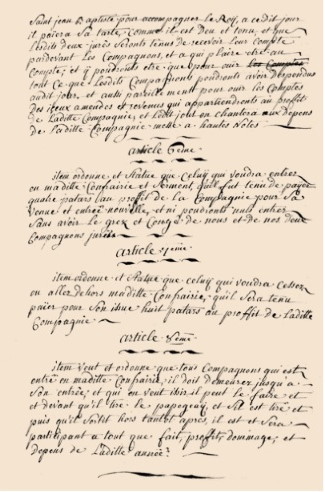 Saint Jean Baptiste pour accompagner le Roy, a cedit jour
il paiera Sa tarte, Comme il est Deu et tenu, et que
lesdits deux jurés Seront tenus de recevoir leur Compte
pardevant les Compagnons, et a qui plaira etre au
Compte; et y poudronts etre que pour ouir les Comptes
tout Ce que lesdits Compagnons poudronts avoir Depondus
audit jour, et aussi pareillement pour ouir les Comptes
des iceux amendes et revenus qui appartiendronts au proffit
de Ladite Compagnie, et Ledit jour en chantera aux depens
de Ladille Compagnie messe a hautes Notes.
article 6eme
item ordonne et Statue que Celuy qui voudra entrer
en madille Confrairie et Serment, qu'il fut tenu de payer
quatre patars au proffit de la Compagnie pour Sa
Venue et entrée nouvelle, et ni poudronts nuls entrer
Sans avoir Le grez et Congé de nous et de nos deux
Compagnons jurés
article 7eme
item ordonne et Statue que celuy qui voudra Cesser
ou aller dehors madille Confrairie, qu'il Sera tenu
païer pour Son issue huit patars au proffit de Ladille
Compagnie
article 8eme
item Veut et ordonne que tous Compagnons qui est
entré en maditte Confrairie, il doit demeurer jusqu a
Son entrée, et qui en veut issir il peut le faire et
et devant qu'il tire le papegay, et Sil est tiré et
puis qu'il Sortit hors tantôt après, il est et Sera
participant a tout que fait, proffit, dommage, et
depens de Ladille année